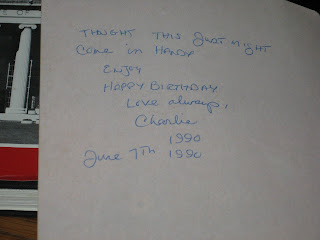 THOUGHT THIS JUST MIGHT
COME IN HANDY
ENJOY
HAPPY BIRTHDAY
Love always,
Charlie
1990
June 7TH 1990